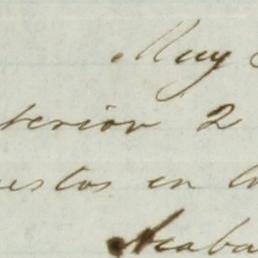 Muy
terior 2
uestos en la
Acaba